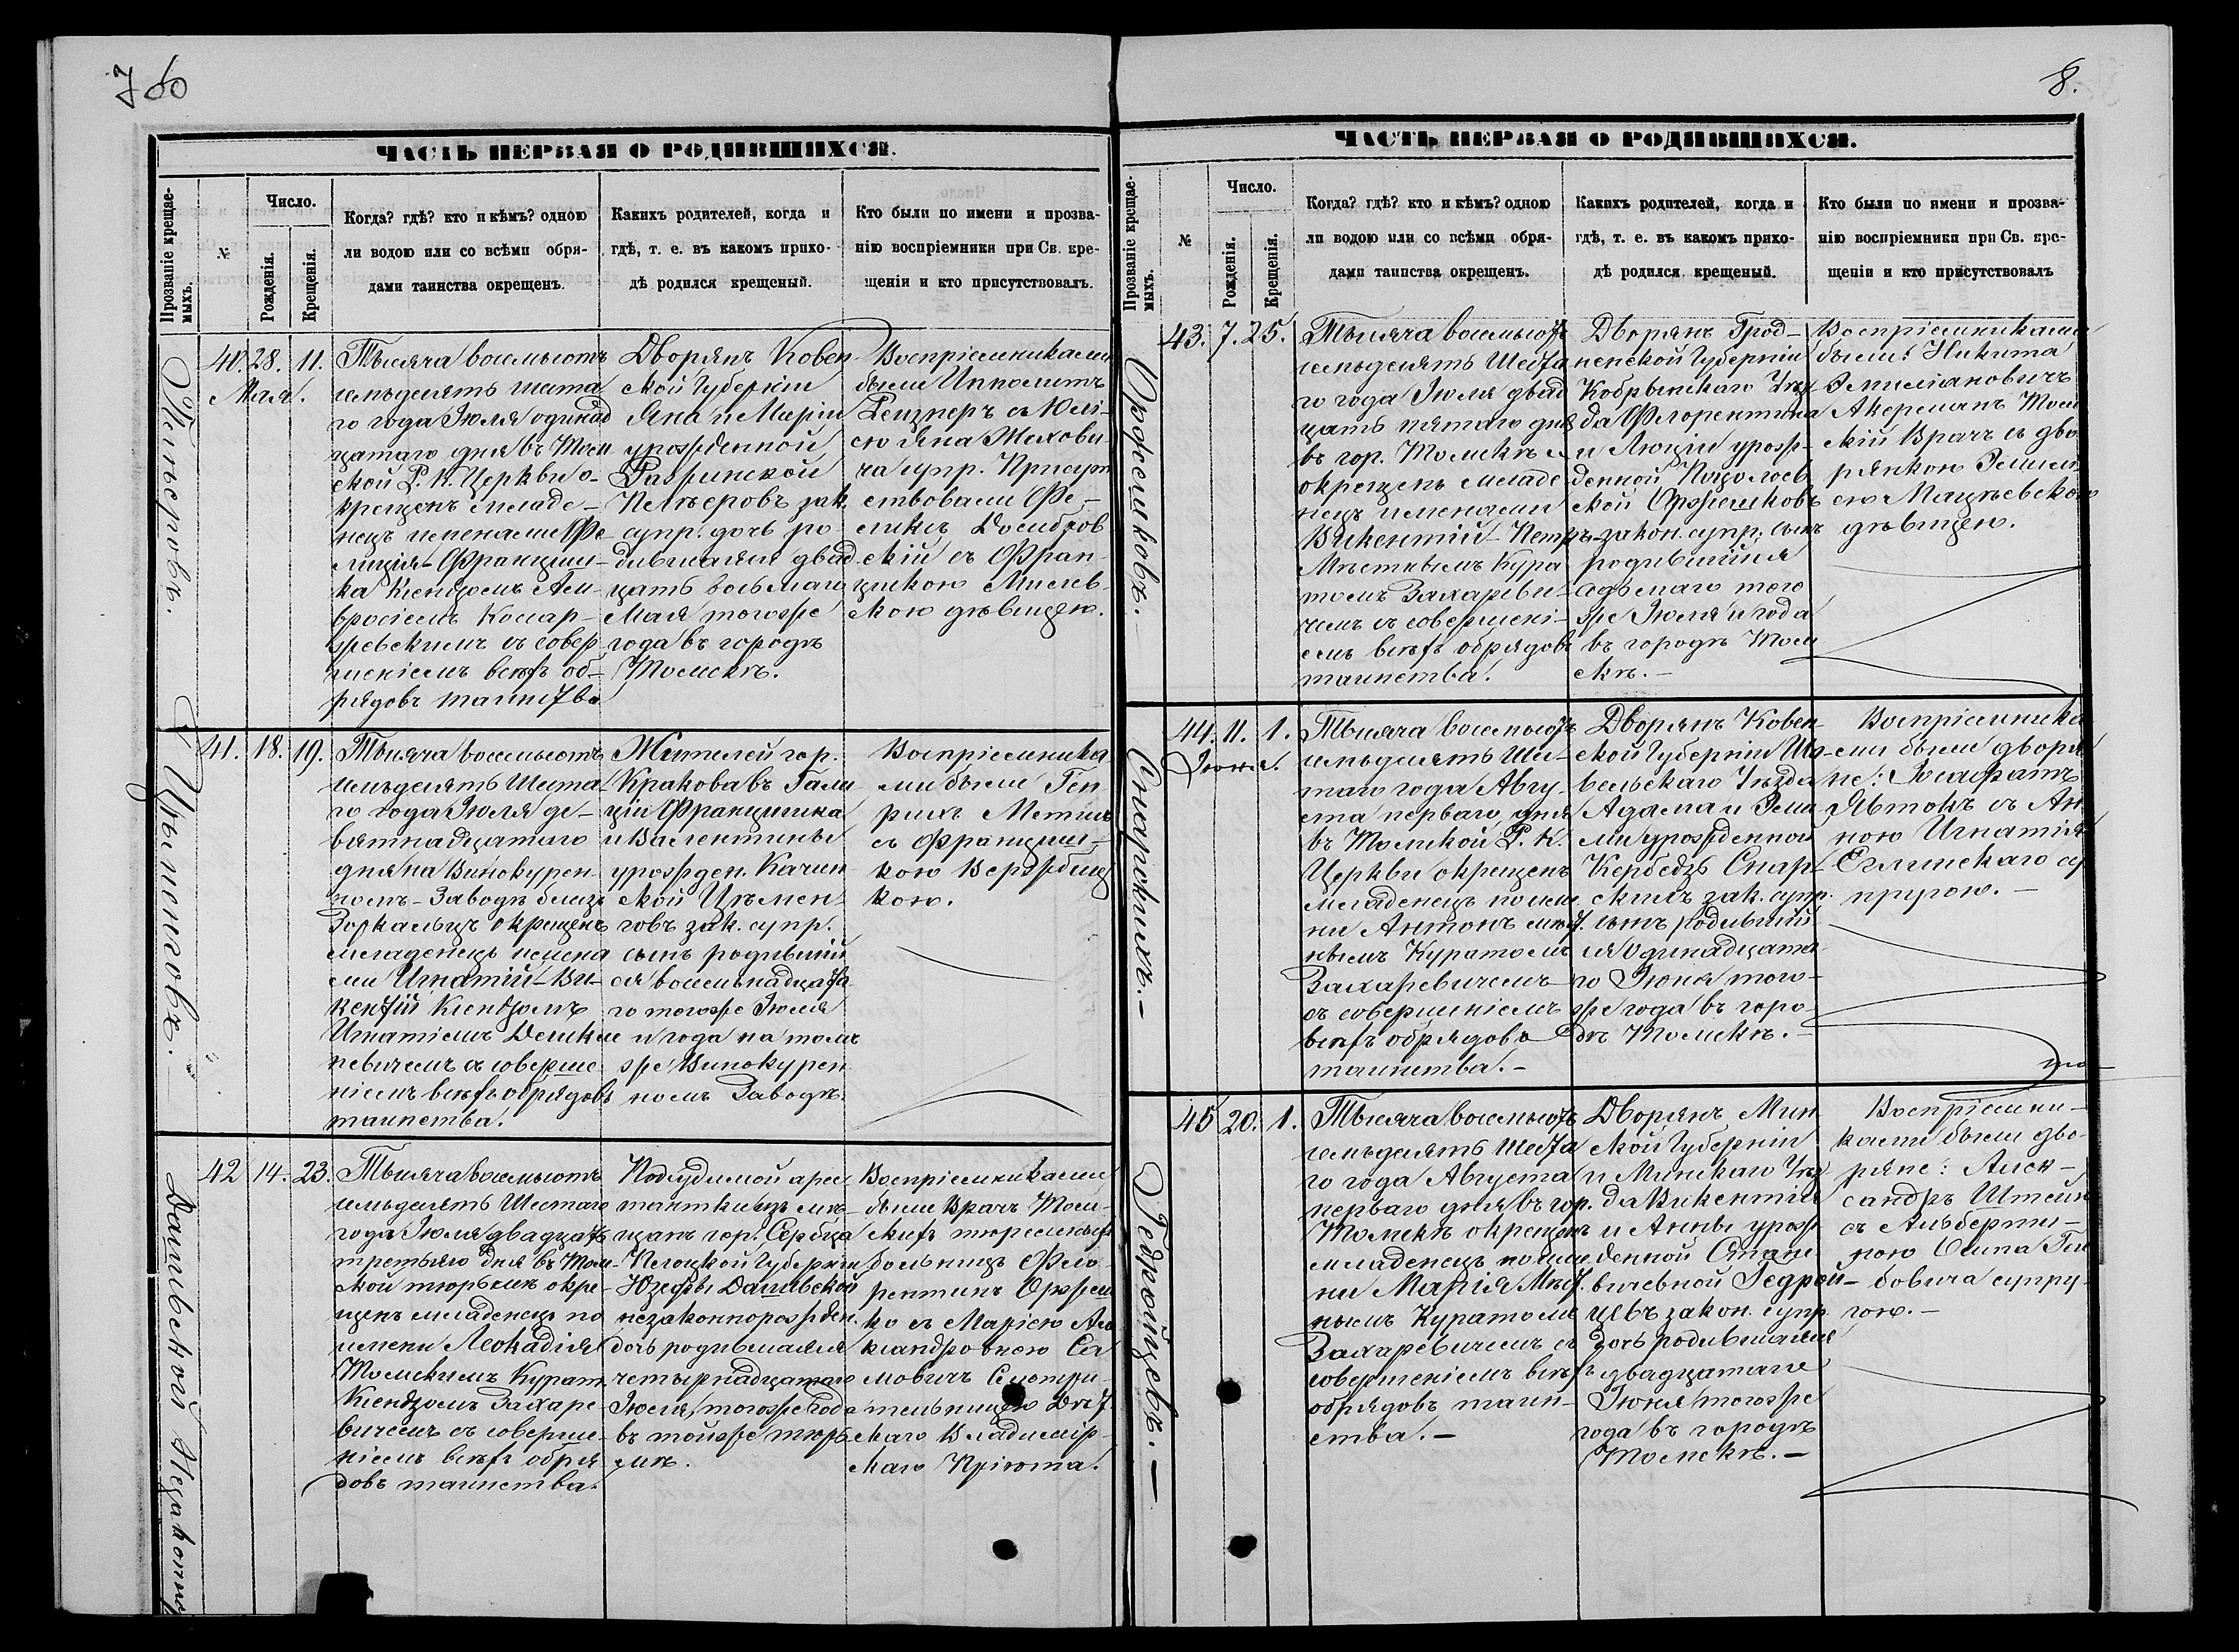 7 об
ЧАСТЬ ПЕРВАЯ О РОДИВШИХСЯ.
Прозваніе крещае-
мыхъ.
№
Число.
Рожденія.
Крещенія.
Когда? гдѣ? кто и кѣмъ? одною
ли водою или со всѣми обря-
дами таинства окрещенъ.
Какихъ родителей, когда и
гдѣ, т. е. въ какомъ прихо-
дѣ родился крещеный.
Кто были по имени и прозва-
нію воспріемники при Св. кре-
щеніи и кто присутствовалъ.
Пельеровъ.
40. 28. 11.
Мая.
Тысяча восемьсотъ
семьдесятъ шеста
го года Іюля одинад
цатаго дня въ Том
ской Р. К. Церкви о-
крещенъ младе-
нецъ именами Фе-
лиція-Франциш-
ка Ксендзомъ Ам-
вросіемъ Косар-
жевскимъ съ совер-
шеніемъ всѣхъ об-
рядовъ таинства
Дворянъ Ковен-
ской Губерніи
Яна и Маріи
урожденной
Пелъеровъ зак.
супр. дочь ро-
дившаяся двад-
цать восьмаго
Мая тогоже
года въ городѣ
Томскѣ.
Воспріемниками
были Ипполитъ
съ Юлі-
ею Яна Жихови-
ча супр. Присут
ствовали Фе-
ликсъ Домбров
скій съ Фран-
цишкою Мисев-
скою дѣвицею.
Цѣменговъ.
41. 18. 19.
Тысяча восемьсотъ
семьдесятъ Шеста
го года Іюля де-
вятнадцатаго
дня на Винокурен-
номъ-Заводѣ близъ
окрещенъ
младенецъ имена
ми Игнатій-Ви-
кентій Ксендзомъ
Игнатіемъ Демки
невичемъ съ соверше-
ніемъ всѣхъ обрядовъ
таинства.
Жителей гор.
Кракова въ Гали
ціи Францишка
и Валентины
урожден. Качин
ской Цѣмен-
говъ зак. супр.
сынъ родивший
ся восемьнадцата
го тогоже Іюля
и года на томъ
же Винокурен
номъ Заводѣ.
Воспріемника
ми были Ген
рихъ Метишъ
съ Францишъ-
кою Вержбиц
кою.
Данивской Незаконнор
42 14. 23.
Тысяча восемьсотъ
семьдесятъ Шестаго
года Іюля двадцать
третьяго дня въ Том-
ской тюрьмѣ окре-
щенъ младенецъ по
имени Леокадія
Томскимъ Курат.
Ксендзомъ Захаре-
вичемъ съ соверше-
ніемъ всѣхъ обря
довъ таинства.
Подсудимой арес
тантки изъ мѣ-
щанъ гор. Сербца
Плоцкой Губерніи
Юзефы Данивской
незаконнорожден.
дочь родившаяся
четырнадцатаго
Іюля, тогоже года
въ тойже тюрь-
мѣ.
Воспріемниками
были Врачъ Том-
скихъ тюремныхъ
больницъ Фло-
рентинъ Оржеш
ко съ Маріею Але
ксандровною Се
мовичъ Смотри-
тельницею Дѣт
скаго Владимір-
скаго Пріюта.
8.
ЧАСТЬ ПЕРВАЯ О РОДИВШИХСЯ.
Прозваніе крещае-
мыхъ.
№
Число.
Рожденія.
Крещенія.
Когда? гдѣ? кто и кѣмъ? одною
ли водою или со всѣми обря-
дами таинства окрещенъ.
Какихъ родителей, когда и
гдѣ, т. е. въ какомъ прихо-
дѣ родился крещеный.
Кто были по имени и прозва-
нію воспріемники при Св. кре-
щеніи и кто присутствовалъ
Оржешковъ.
43. 7. 25.
Тысяча восемьсотъ
семьдесятъ Шеста
го года Іюля двад
цать пятаго дня
въ гор. Томскѣ
окрещенъ младе
нецъ именами
Викентій-Петръ
Мѣстнымъ Кура
томъ Захареви-
чемъ съ совершені-
емъ всѣхъ обрядовъ
таинства.
Дворянъ Грод-
ненской Губерніи
Кобрынскаго Уѣз
да Флорентина
и Люціи урож-
денной
ской Оржешковъ
закон. супр. сынъ
родившійся
седьмаго того
же Іюля и года
въ городѣ Том
скѣ.-
Воспріемниками
были: Никита
Эмиліяновичъ
Акерманъ Том
скій Врачъ съ дво
рянкою Эмилі
ею Мацѣевскою
дѣвицею.
Снарскихъ.-
44. 11. 1.
Іюня.
Тысяча восемьсотъ
семьдесятъ Ше-
стаго года Авгу-
ста перваго дня
въ Томской Р. К.
Церкви окрещенъ
младенецъ по име
ни Антонъ мѣст.
нымъ Куратомъ
Захаревичемъ
съ совершеніемъ
всѣхъ обрядовъ
таинства.-
Дворянъ Ковен-
ской Губерніи Ша-
вельскаго Уѣзда
Адама и Эми
ліи урожденной
Кербедзь Снар-
скихъ зак. супр.
сынъ родившій
ся Одинадцата
го Іюня того-
же года въ горо-
дѣ Томскѣ.-
Воспріемника
ми были дворя
не: Іосафатъ
Явтокъ съ Ан
ною Игнатія
Еглинскаго су
пругою.-
Гедройцевъ.-
45 20. 1.
Тысяча восемьсотъ
семьдесятъ Шеста
го года Августа
перваго дня въ гор.
Томскѣ окрещенъ
младенецъ по име
ни Марія Мѣст.
нымъ Куратомъ
Захаревичемъ съ
совершеніемъ всѣхъ
обрядовъ таин-
ства.-
Дворянъ Мин
ской Губерніи
и Минскаго Уѣз
да Викентія
и Анны урож
денной Стани
вичевной Гедрой-
цевъ закон. супр.
дочь родившаяся
двадцатаго
Іюня тогоже
года въ городѣ
Томскѣ.-
Воспріемни-
ками были дво-
ряне: Алек-
сандръ Штейн
съ Альберти-
ною Осипа Гем
бовича супру-
гою.-